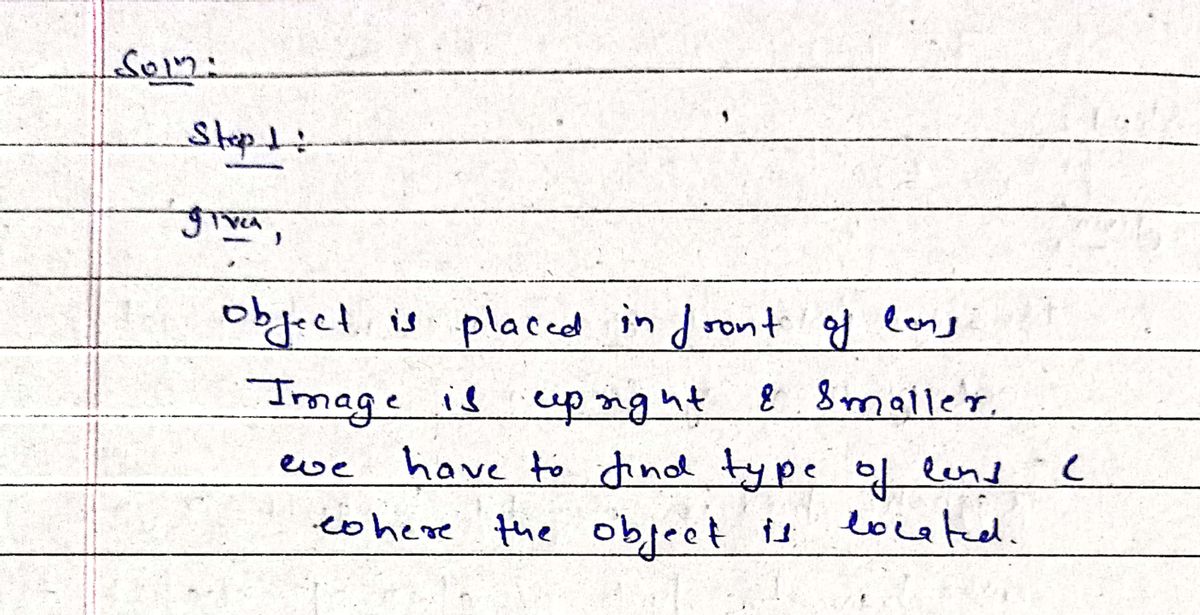 Soln:
Step 1:
given,
object is placed in front of lens
Image is upright & smaller.
we have to find type of lens &
where the object is located.